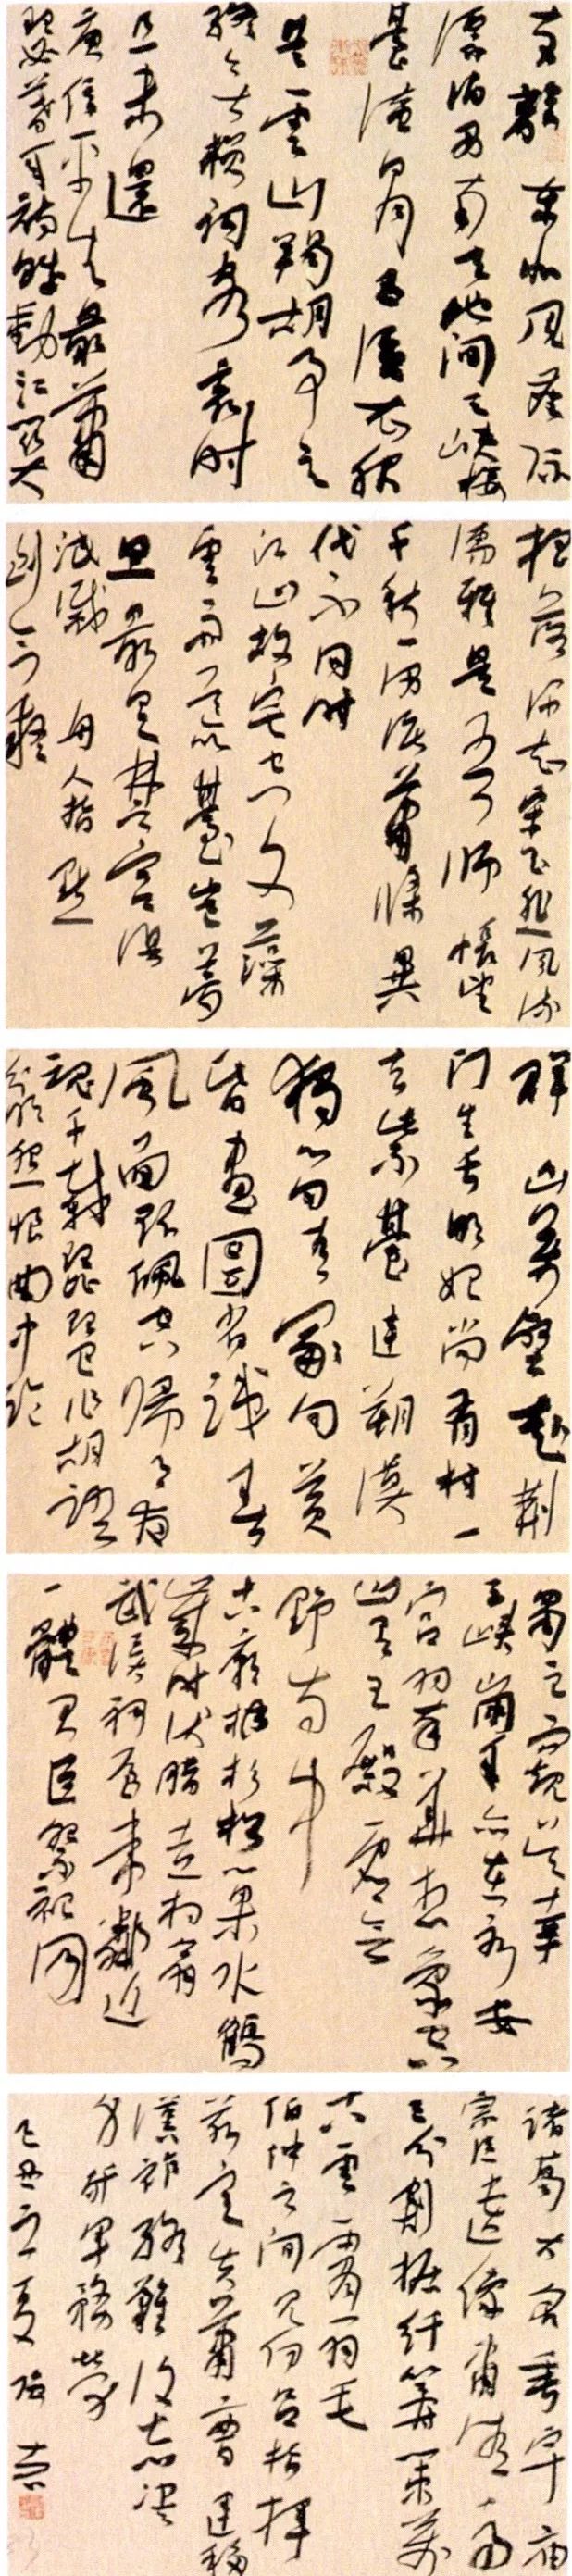 支離東北風塵際
漂泊西南天地間三峽樓
臺淹日月五溪衣服
共雲山羯胡事主
終無賴詞客哀時
且未還
庾信平生最蕭
瑟暮年詩賦動江關
搖落深知宋玉悲風流
儒雅是吾師悵望
千秋一洒淚蕭條異
代不同時
江山故宅空文藻
雲雨荒臺豈夢
思最是楚宮俱
泯滅舟人指點
到今疑
群山萬壑赴荊
門生長明妃尚有村一
去紫臺連朔漠
獨留青冢向黃
昏畫圖省識春
風面環佩空歸月夜
魂千載琵琶作胡語
分明怨恨曲中論
蜀主窺吳幸
三峽崩年亦在永安
宮翠華想象空
山里玉殿虛無
野寺中
古廟杉松巢水鶴
歲時伏臘走村翁
武侯祠屋常鄰近
一體君臣祭祀同
諸葛大名垂宇宙
宗臣遺像肅清高
三分割據紆籌策萬
古雲霄一羽毛
伯仲之間見伊呂指揮
若定失蕭曹運移
漢祚終難復志決
身殲軍務勞
己丑立夏